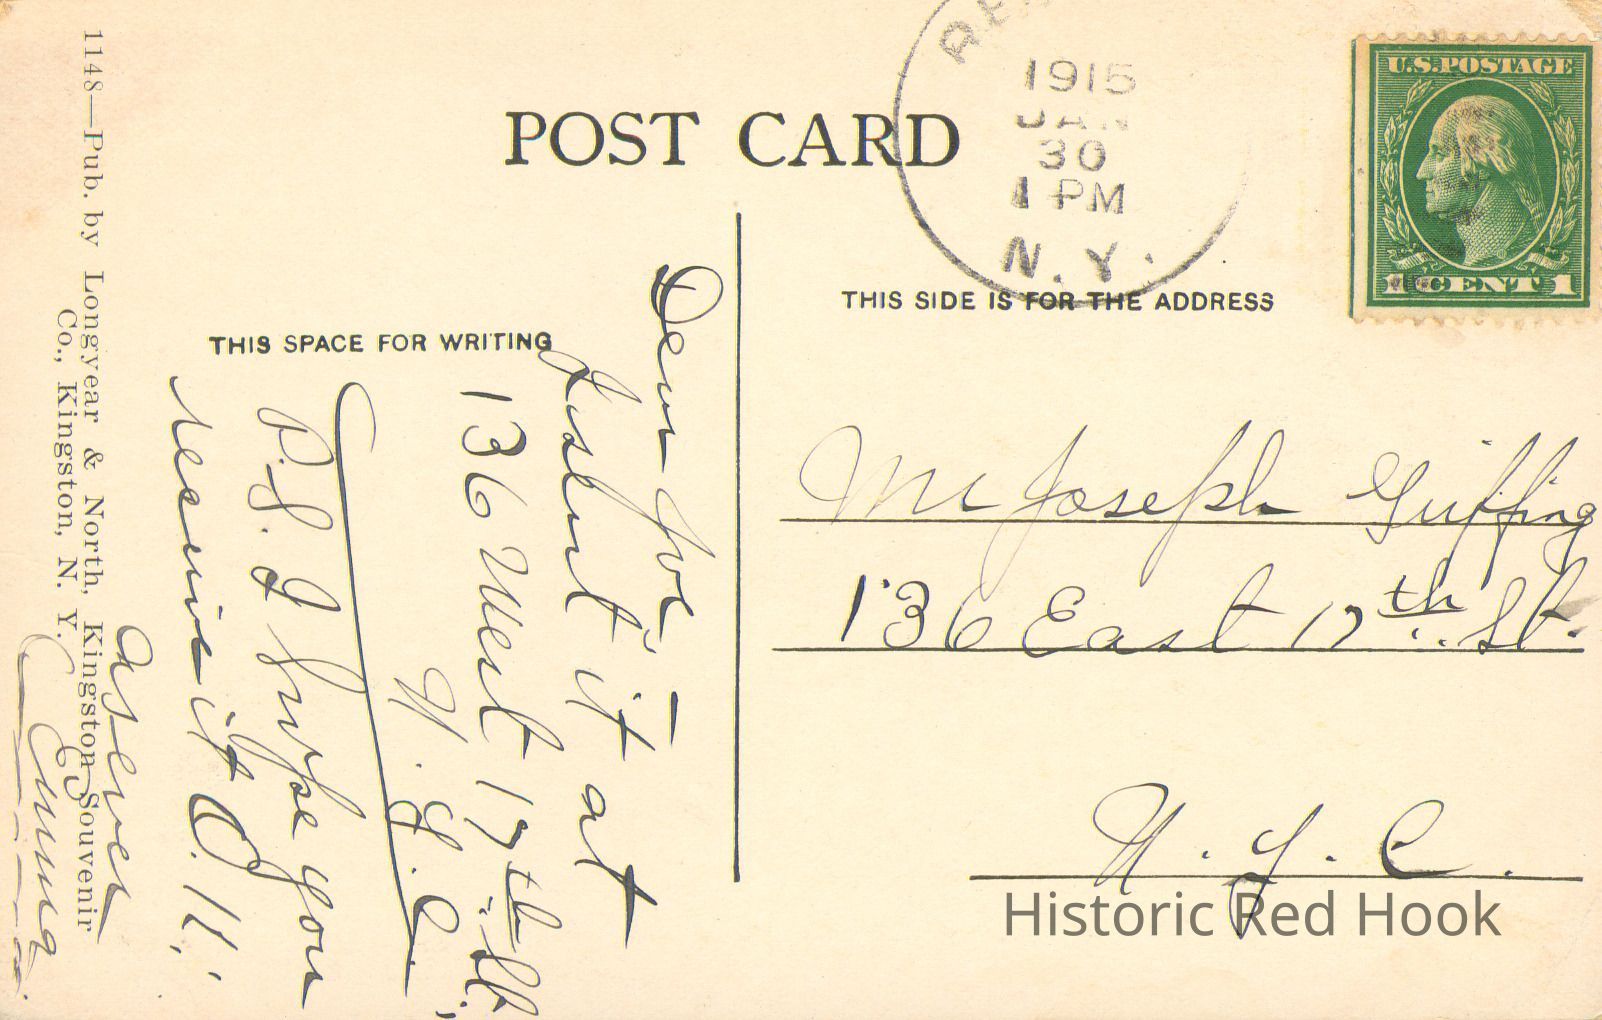 POST CARD
1915
JAN
30
1 PM
N.Y.
U.S. POSTAGE
1 CENT 1
THIS SPACE FOR WRITING
THIS SIDE IS FOR THE ADDRESS
Dear Joe –
I sent it at
136 West 17th St.,
N. Y. C.
P.S. I supose you
receive it O.K.
As ever
Emma
Mr Joseph Griffing
136 East 17th St.
N. Y. C.
1148—Pub. by Longyear & North, Kingston Souvenir
Co., Kingston, N. Y.
Historic Red Hook